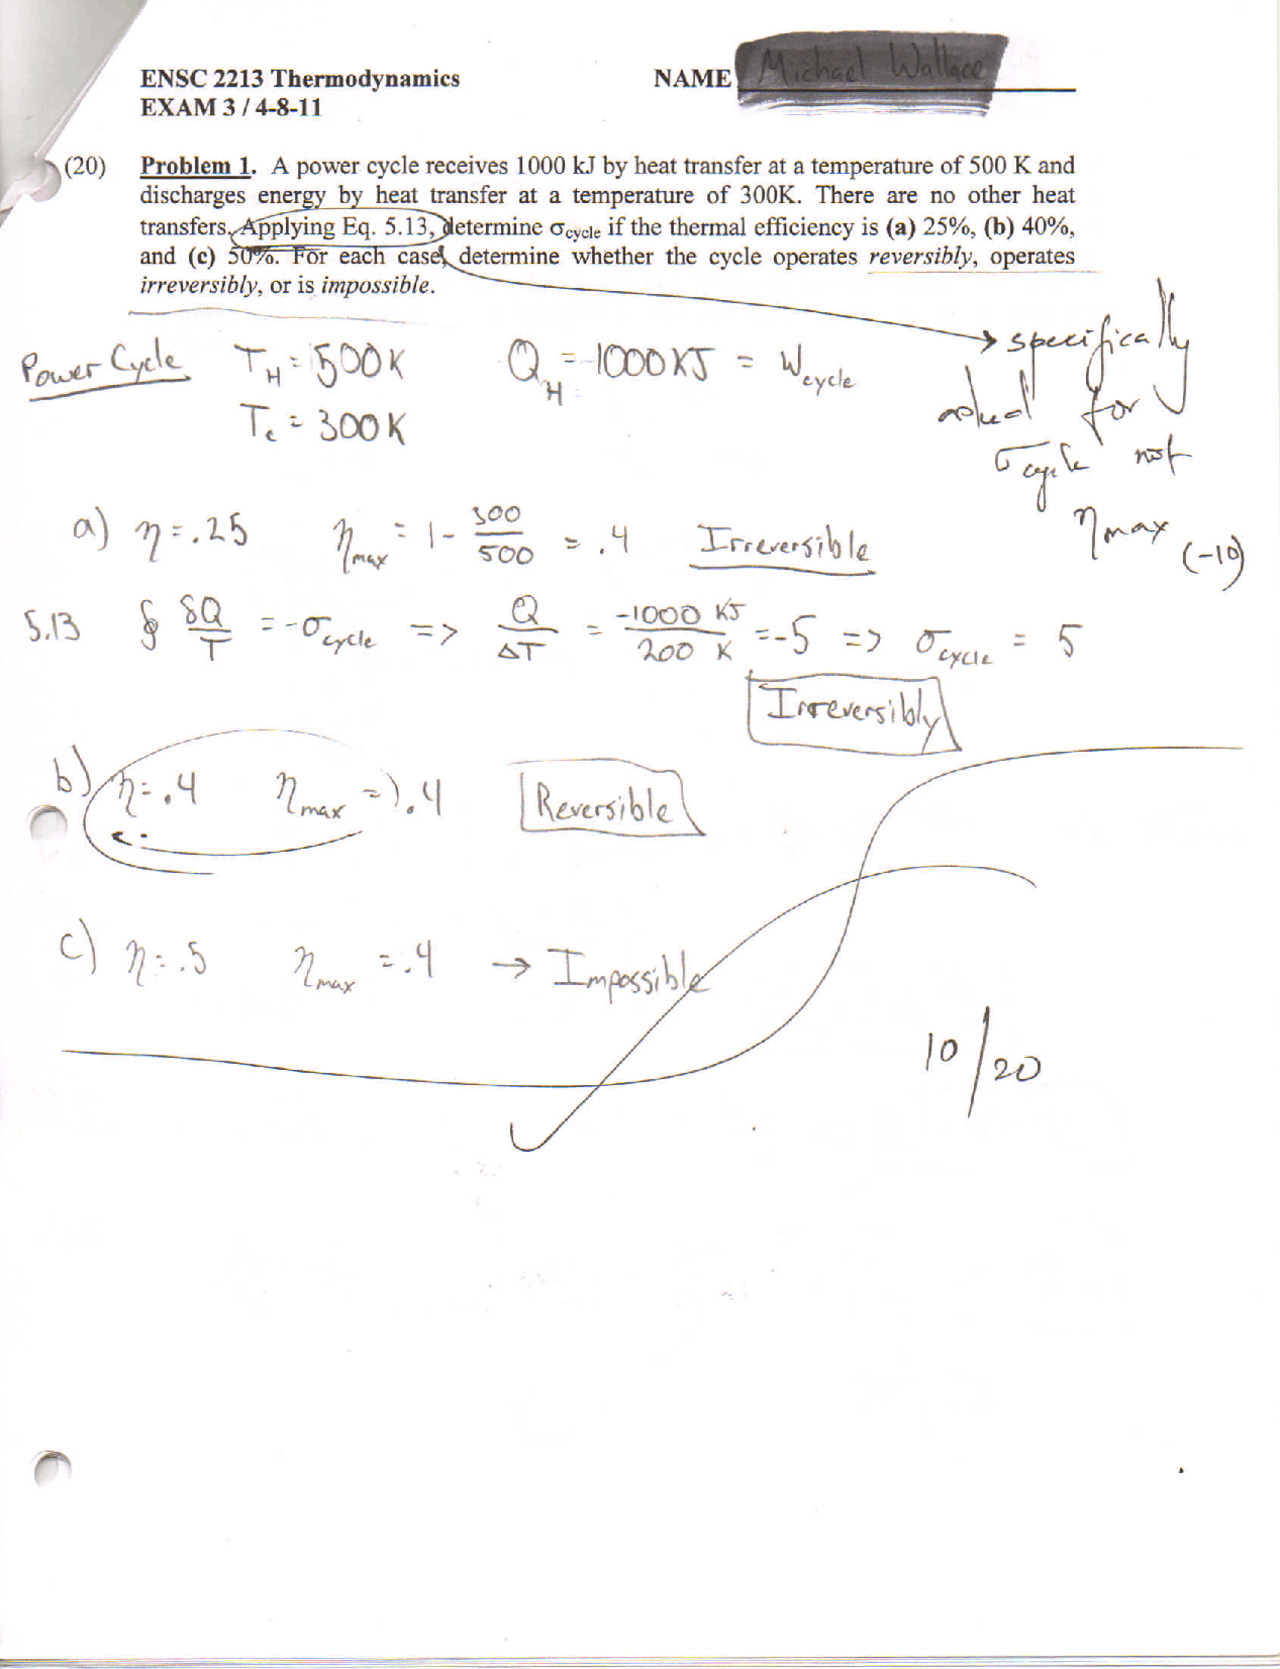 ENSC 2213 Thermodynamics
NAME Michael Wallace
EXAM 3 / 4-8-11
(20) Problem 1. A power cycle receives 1000 kJ by heat transfer at a temperature of 500 K and
discharges energy by heat transfer at a temperature of 300K. There are no other heat
transfers. Applying Eq. 5.13, determine σcycle if the thermal efficiency is (a) 25%, (b) 40%,
and (c) 50%. For each case, determine whether the cycle operates reversibly, operates
irreversibly, or is impossible.
→ specifically
asked for
σcycle not
ηmax (-10)
Power Cycle TH = 500K QH = -1000 KJ = Wcycle
Tc = 300K
a) η = .25 ηmax = 1 - 300/500 = .4 Irreversible
5.13 ∮ δQ/T = -σcycle => Q/ΔT = -1000 KJ/200 K = -5 => σcycle = 5
Irreversibly
b) η = .4 ηmax = .4 Reversible
c) η = .5 ηmax = .4 → Impossible
10/20